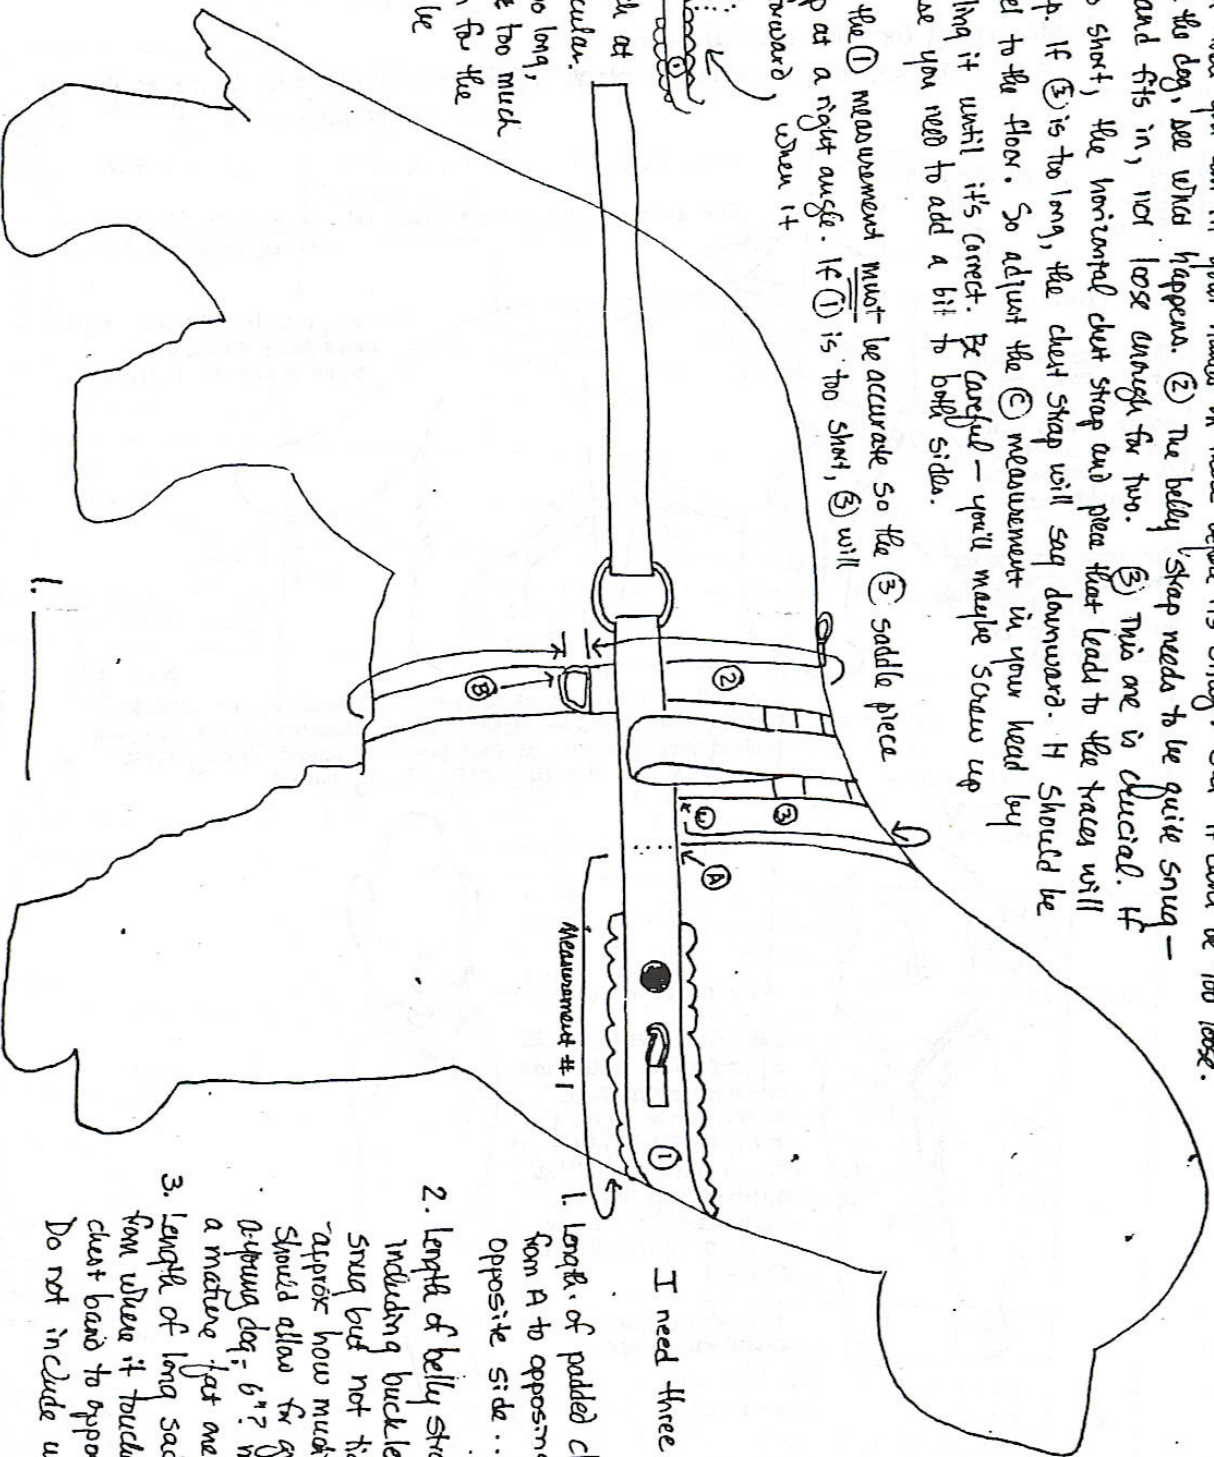 be too loose.
the dog, see what happens. ② The belly strap needs to be quite snug —
and fits in, not loose enough for two. ③ This one is crucial. If
short, the horizontal chest strap and piece that leads to the traces will
p. If ③ is too long, the chest strap will sag downward. It should be
el to the floor. So adjust the Ⓒ measurement in your head by
ling it until it's correct. Be careful — you'll maybe screw up
se you need to add a bit to both sides.
the ① measurement must be accurate so the ③ saddle piece
p at a right angle. If ① is too short, ③ will
forward, when it
①
ch at
cular.
o long,
t too much
n for the
be
②
③
Ⓒ
Ⓐ
Ⓑ
①
Measurement #1
I need three
1. Length of padded c
from A to opposi
opposite side...
2. Length of belly str
including buckle
snug but not ti
approx how muc
should allow for g
a young dog, 6"?
a mature fat one
3. Length of long sad
from where it touch
chest band to oppo
Do not include
1.